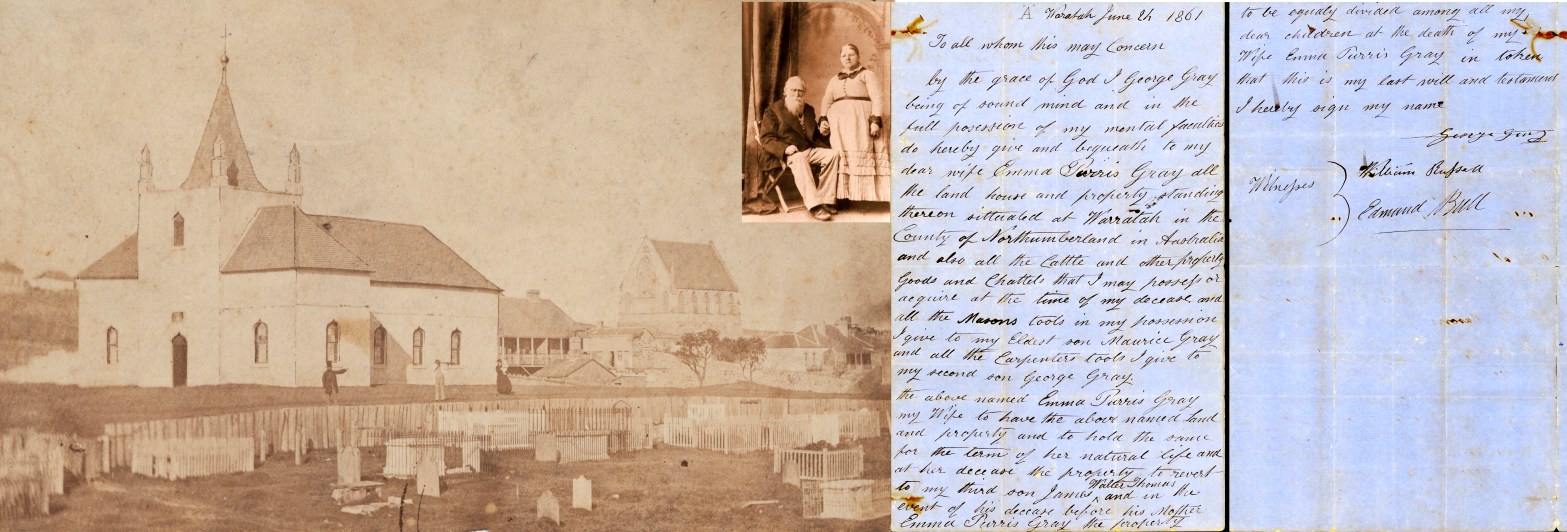 A Waratah June 24 1861
To all whom this may Concern
by the grace of God I George Gray
being of sound mind and in the
full posession of my mental faculties
do hereby give and bequeath to my
dear wife Emma Purris Gray all
the land house and property standing
thereon sittuated at Warratah in the
County of Northumberland in Australia
and also all the Cattle and other property
Goods and Chattels that I may possess or
acquire at the time of my decease and
all the Masons tools in my possession
I give to my Eldest son Maurice Gray
and all the Carpenters tools I give to
my second son George Gray.
the above named Emma Purris Gray
my Wife to have the above named land
and property and to hold the same
for the term of her natural life and
at her decease the property to revert
to my third son James Walter Thomas and in the
event of his decease before his Mother
Emma Purris Gray the property
to be equaly divided among all my
dear children at the death of my
Wife Emma Purris Gray in token
that this is my last will and testament
I hereby sign my name
George Gray
Witnesses
William Russell
Edmund Bull